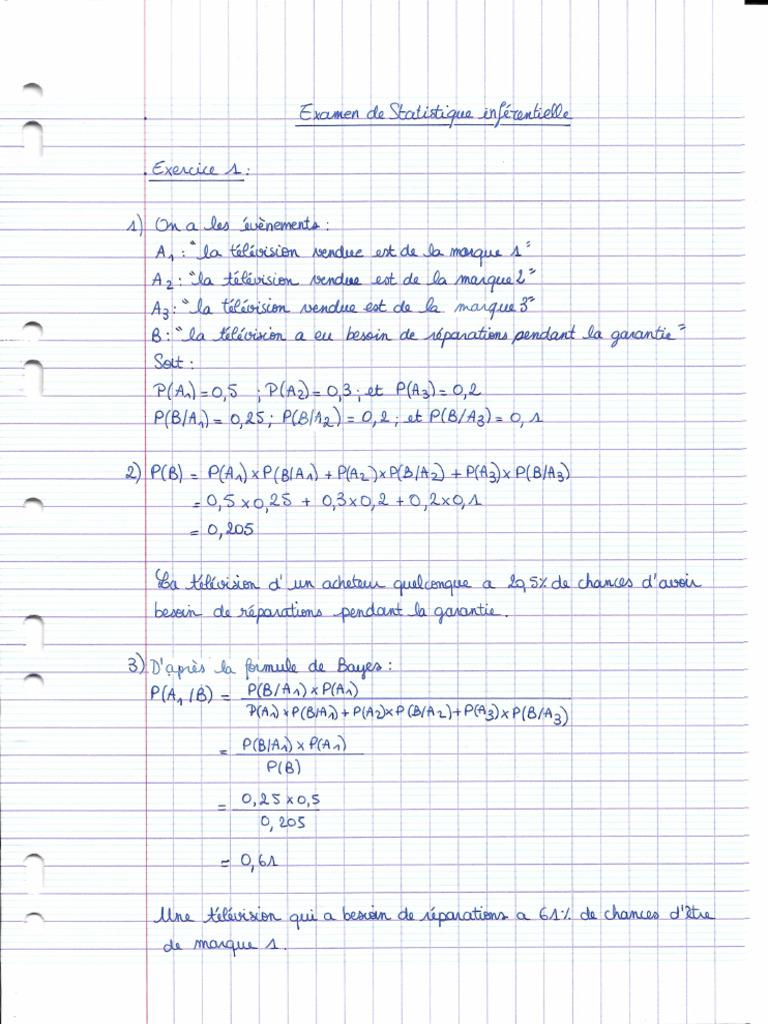 Examen de Statistique inférentielle
Exercice 1 :
1) On a les évènements :
A₁ : "la télévision vendue est de la marque 1"
A₂ : "la télévision vendue est de la marque 2"
A₃ : "la télévision vendue est de la marque 3"
B : "la télévision a eu besoin de réparations pendant la garantie"
Soit :
P(A₁) = 0,5 ; P(A₂) = 0,3 ; et P(A₃) = 0,2
P(B/A₁) = 0,25 ; P(B/A₂) = 0,2 ; et P(B/A₃) = 0,1
2) P(B) = P(A₁) × P(B/A₁) + P(A₂) × P(B/A₂) + P(A₃) × P(B/A₃)
= 0,5 × 0,25 + 0,3 × 0,2 + 0,2 × 0,1
= 0,205
La télévision d'un acheteur quelconque a 20,5% de chances d'avoir
besoin de réparations pendant la garantie.
3) D'après la formule de Bayes :
P(A₁/B) = P(B/A₁) × P(A₁)
P(A₁) × P(B/A₁) + P(A₂) × P(B/A₂) + P(A₃) × P(B/A₃)
= P(B/A₁) × P(A₁)
P(B)
= 0,25 × 0,5
0,205
= 0,61
Une télévision qui a besoin de réparations a 61% de chances d'être
de marque 1.